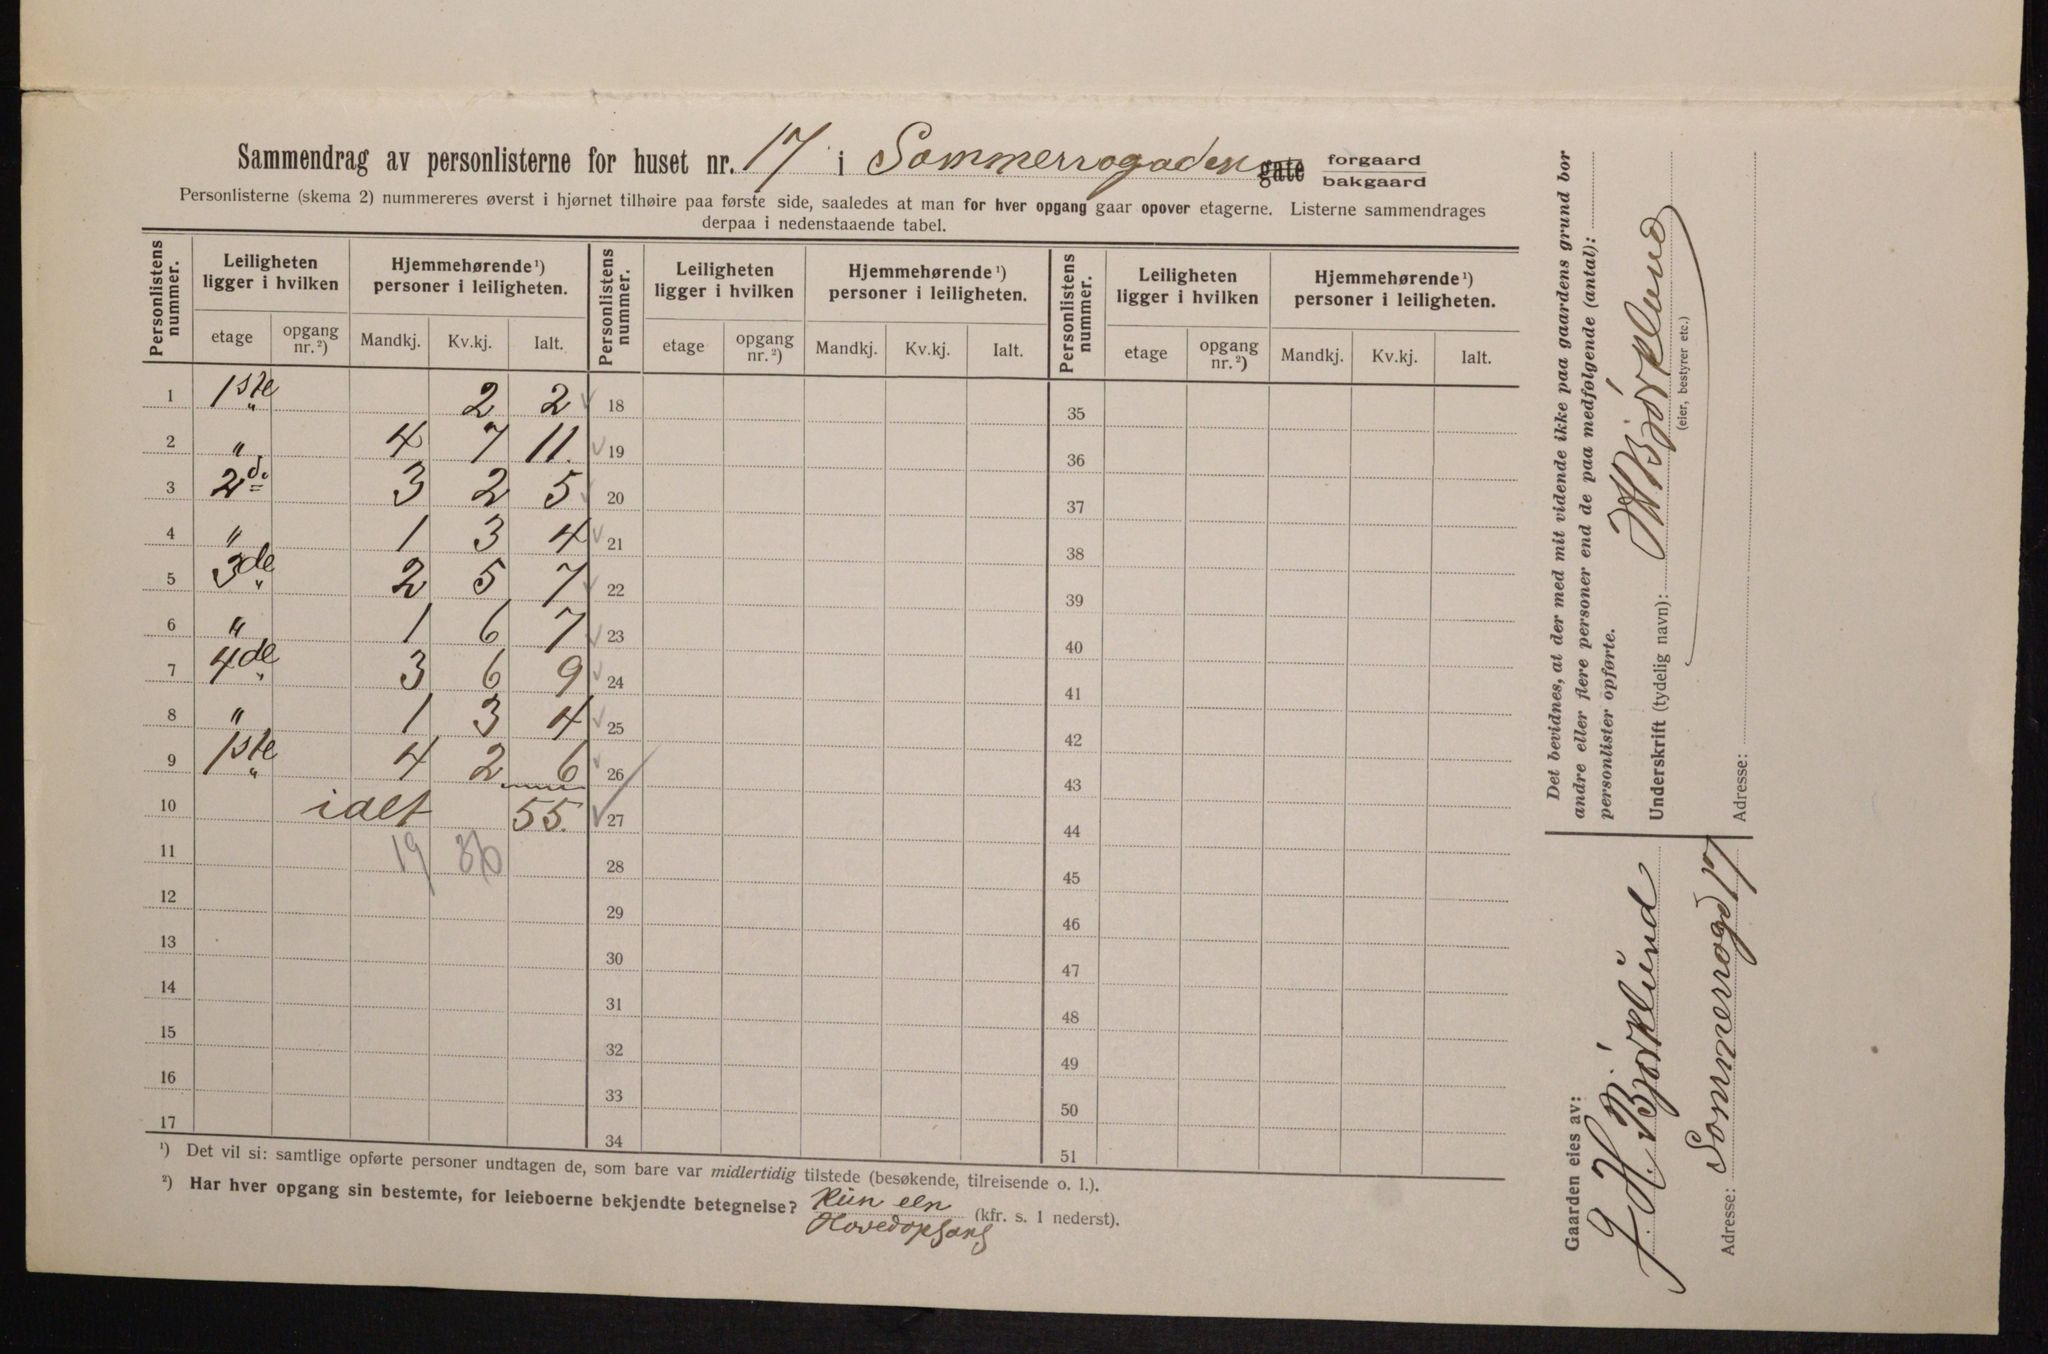 Sammendrag av personlisterne for huset nr. 17 i Sommerrogaden gate forgaard bakgaard
Personlisterne (skema 2) nummereres øverst i hjørnet tilhøire paa første side, saaledes at man for hver opgang gaar opover etagerne. Listerne sammendrages
derpaa i nedenstaaende tabel.
Personlistens nummer. Leiligheten ligger i hvilken Hjemmehørende ¹) personer i leiligheten. Personlistens nummer. Leiligheten ligger i hvilken Hjemmehørende ¹) personer i leiligheten. Personlistens nummer. Leiligheten ligger i hvilken Hjemmehørende ¹) personer i leiligheten.
etage opgang nr. ²) Mandkj. Kv.kj. Ialt. etage opgang nr. ²) Mandkj. Kv.kj. Ialt. etage opgang nr. ²) Mandkj. Kv.kj. Ialt.
1 1ste 2 2 18 35
2 " 4 7 11. 19 36
3 2de 3 2 5 20 37
4 " 1 3 4 21 38
5 3de 2 5 7 22 39
6 " 1 6 7 23 40
7 4de 3 6 9 24 41
8 " 1 3 4 25 42
9 1ste 4 2 6 26 43
10 ialt 55. 27 44
11 19 36 28 45
12 29 46
13 30 47
14 31 48
15 32 49
16 33 50
17 34 51
¹) Det vil si: samtlige opførte personer undtagen de, som bare var midlertidig tilstede (besøkende, tilreisende o. l.).
²) Har hver opgang sin bestemte, for leieboerne bekjendte betegnelse? Kun een (kfr. s. 1 nederst).
Hovedopgang
Det bevidnes, at der med mit vidende ikke paa gaardens grund bor
andre eller flere personer end de paa medfølgende (antal):
personlister opførte.
Underskrift (tydelig navn): H Björklund
(eier, bestyrer etc.)
Adresse:
Gaarden eies av:
J. H. Björklund
Adresse: Sommerrogd 17